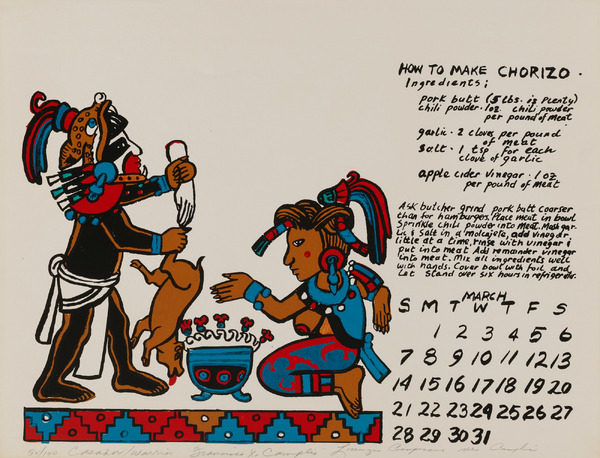 HOW TO MAKE CHORIZO.
Ingredients;
pork butt (5 lbs. is plenty)
chili powder. 1oz. chili powder
per pound of meat
garlic. 2 cloves per pound
of meat
salt. 1 tsp for each
clove of garlic
apple cider vinegar. 1 oz
per pound of meat
Ask butcher grind pork butt coarser
than for hamburgers. Place meat in bowl
Sprinkle chili powder into meat. Mash gar-
lic & salt in a molcajete, add vinegar
little at a time, rinse with vinegar &
put into meat Add remainder vinegar
into meat. Mix all ingredients well
with hands. Cover bowl with foil, and
let stand over six hours in refrigerator.
MARCH
S M T W T F S
1 2 3 4 5 6
7 8 9 10 11 12 13
14 15 16 17 18 19 20
21 22 23 24 25 26 27
28 29 30 31